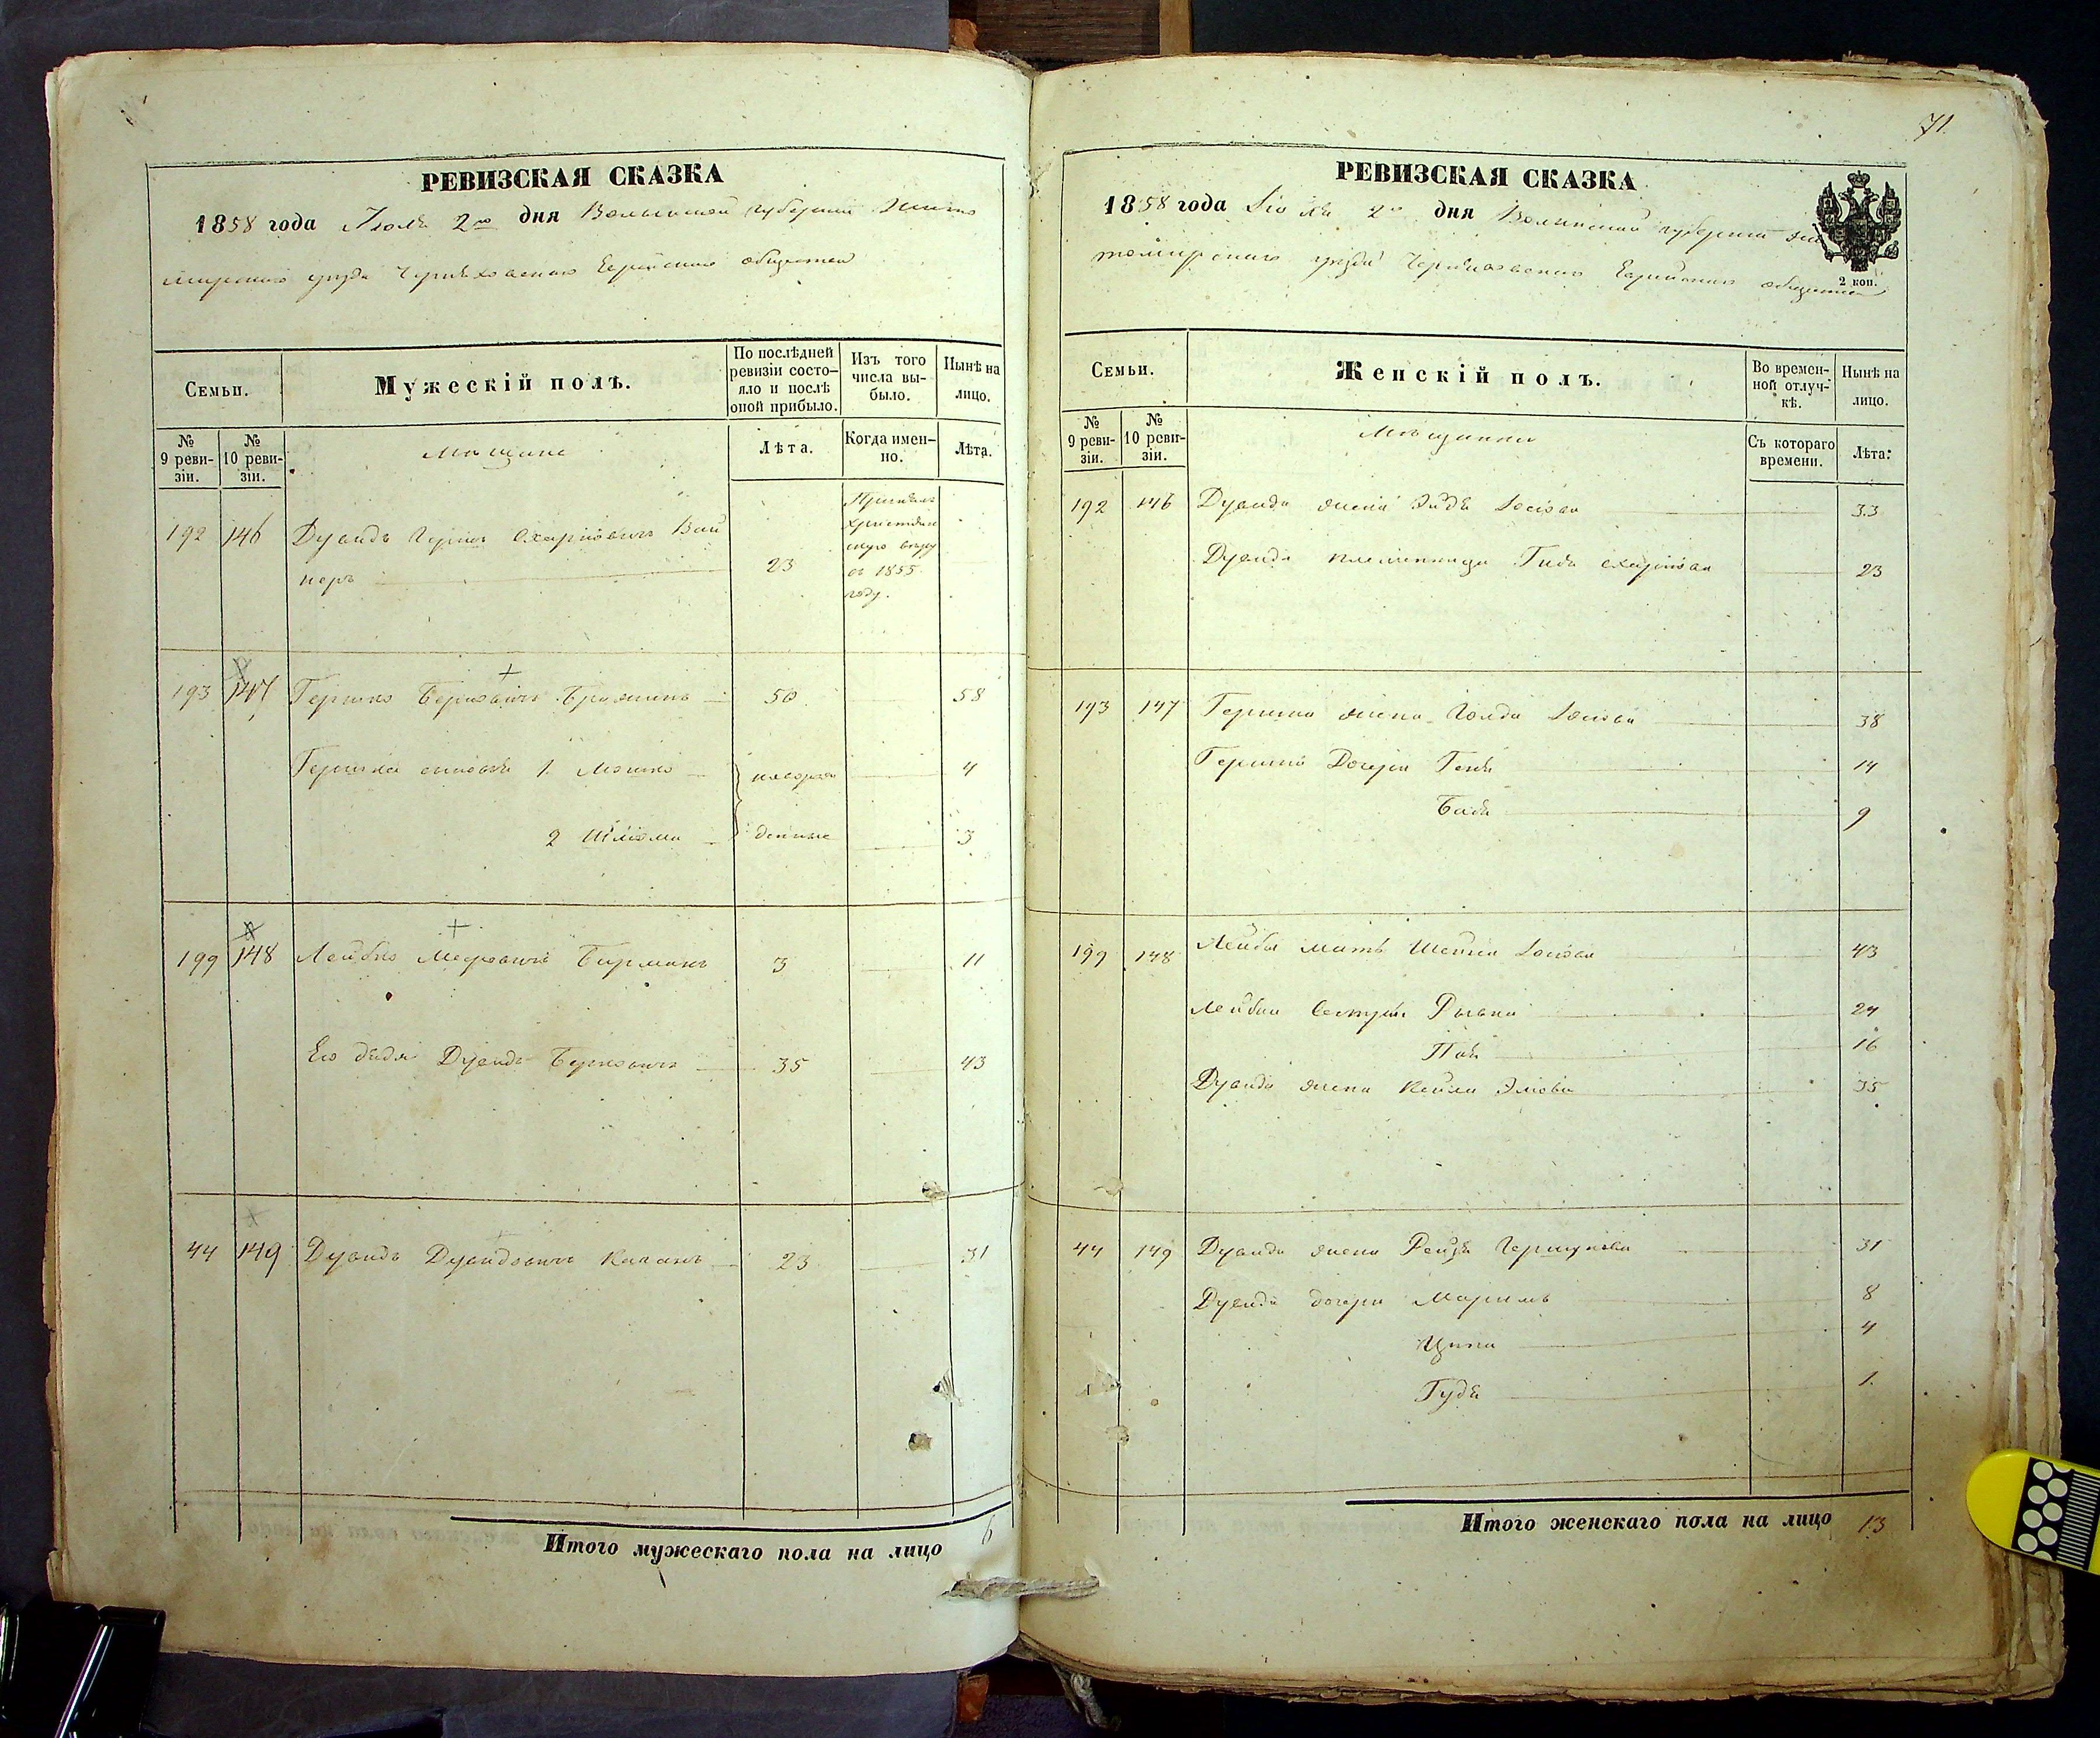 РЕВИЗСКАЯ СКАЗКА
1858 года Июля 2го дня Волынской губернии Жито
мирского уезда Черняховского Еврейского общества
Семьи.
Мужескій полъ.
По послѣдней ревизіи состо-
яло и послѣ
оной прибыло.
Изъ того
числа вы-
было.
Нынѣ на
лицо.
№
9 реви-
зіи.
№
10 реви-
зіи.
Мещане
Лѣта.
Когда имен-
но.
Лѣта.
192 146 Дувидъ Вай
неръ 23
Принялъ
христиан
скую веру
въ 1855
году.
193 147 Гершко Берковичъ 50 58
Гершка сыновья 1. Мошко новорож 4
2 Шлiома денные 3
199 148 Лейбко Мееровичъ Бирманъ 3 11
Его дядя Дувидъ Берковичъ 35 43
44 149 Дувидъ Дувидовичъ Каганъ 23 31
Итого мужескаго пола на лицо 6
71.
РЕВИЗСКАЯ СКАЗКА
1858 года Июля 2го дня Волынской губернии Жи
томирского уезда Черняховского Еврейского общества
2 коп.
Семьи.
Женскій полъ.
Во времен-
ной отлуч-
кѣ.
Нынѣ на
лицо.
№
9 реви-
зіи.
№
10 реви-
зіи.
Мещанки
Съ котораго
времени.
Лѣта.
192 146 Дувида жена 33
Дувида племянница 23
193 147 Гершка жена Голда 38
Гершка дочери Геня 14
Бася 9
199 148 Лейбы мать 43
Лейбки сестры Рывка 24
16
Дувида жена Кейла 35
44 149 Дувида жена Рейзя 31
Дувида дочери Маримъ 8
Ципа 4
Гудя 1.
Итого женскаго пола на лицо 13